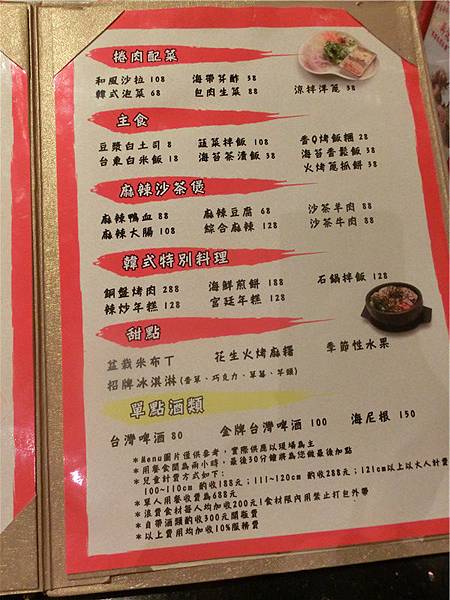 捲肉配菜
和風沙拉 108 海帶芽醋 38
韓式泡菜 68 包肉生菜 88 涼拌洋蔥 38
主食
豆漿白土司 8 蔬菜拌飯 108 香Q烤飯糰 28
台東白米飯 18 海苔茶漬飯 38 海苔香鬆飯 38
火烤蔥抓餅 38
麻辣沙茶煲
麻辣鴨血 88 麻辣豆腐 68 沙茶羊肉 88
麻辣大腸 108 綜合麻辣 128 沙茶牛肉 88
韓式特別料理
銅盤烤肉 288 海鮮煎餅 188 石鍋拌飯 128
辣炒年糕 128 宮廷年糕 128
甜點
盆栽米布丁 花生火烤麻糬 季節性水果
招牌冰淇淋(香草、巧克力、草莓、芋頭)
單點酒類
台灣啤酒 80 金牌台灣啤酒 100 海尼根 150
*Menu圖片僅供參考，實際供應以現場為主
*用餐食間為兩小時，最後30分鐘將為您做最後加點
*兒童計費方式如下：
100~110cm 酌收188元；111~120cm 酌收288元；121cm以上以大人計費
*單人用餐收費為688元
*浪費食材每人均加收200元!食材限內用禁止打包外帶
*自帶酒類酌收300元開瓶費
*以上費用均加收10%服務費